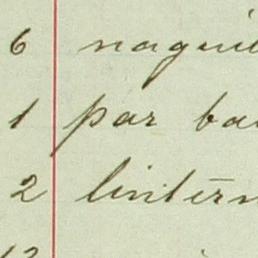 6 nagui
1 par ba
2 lintern